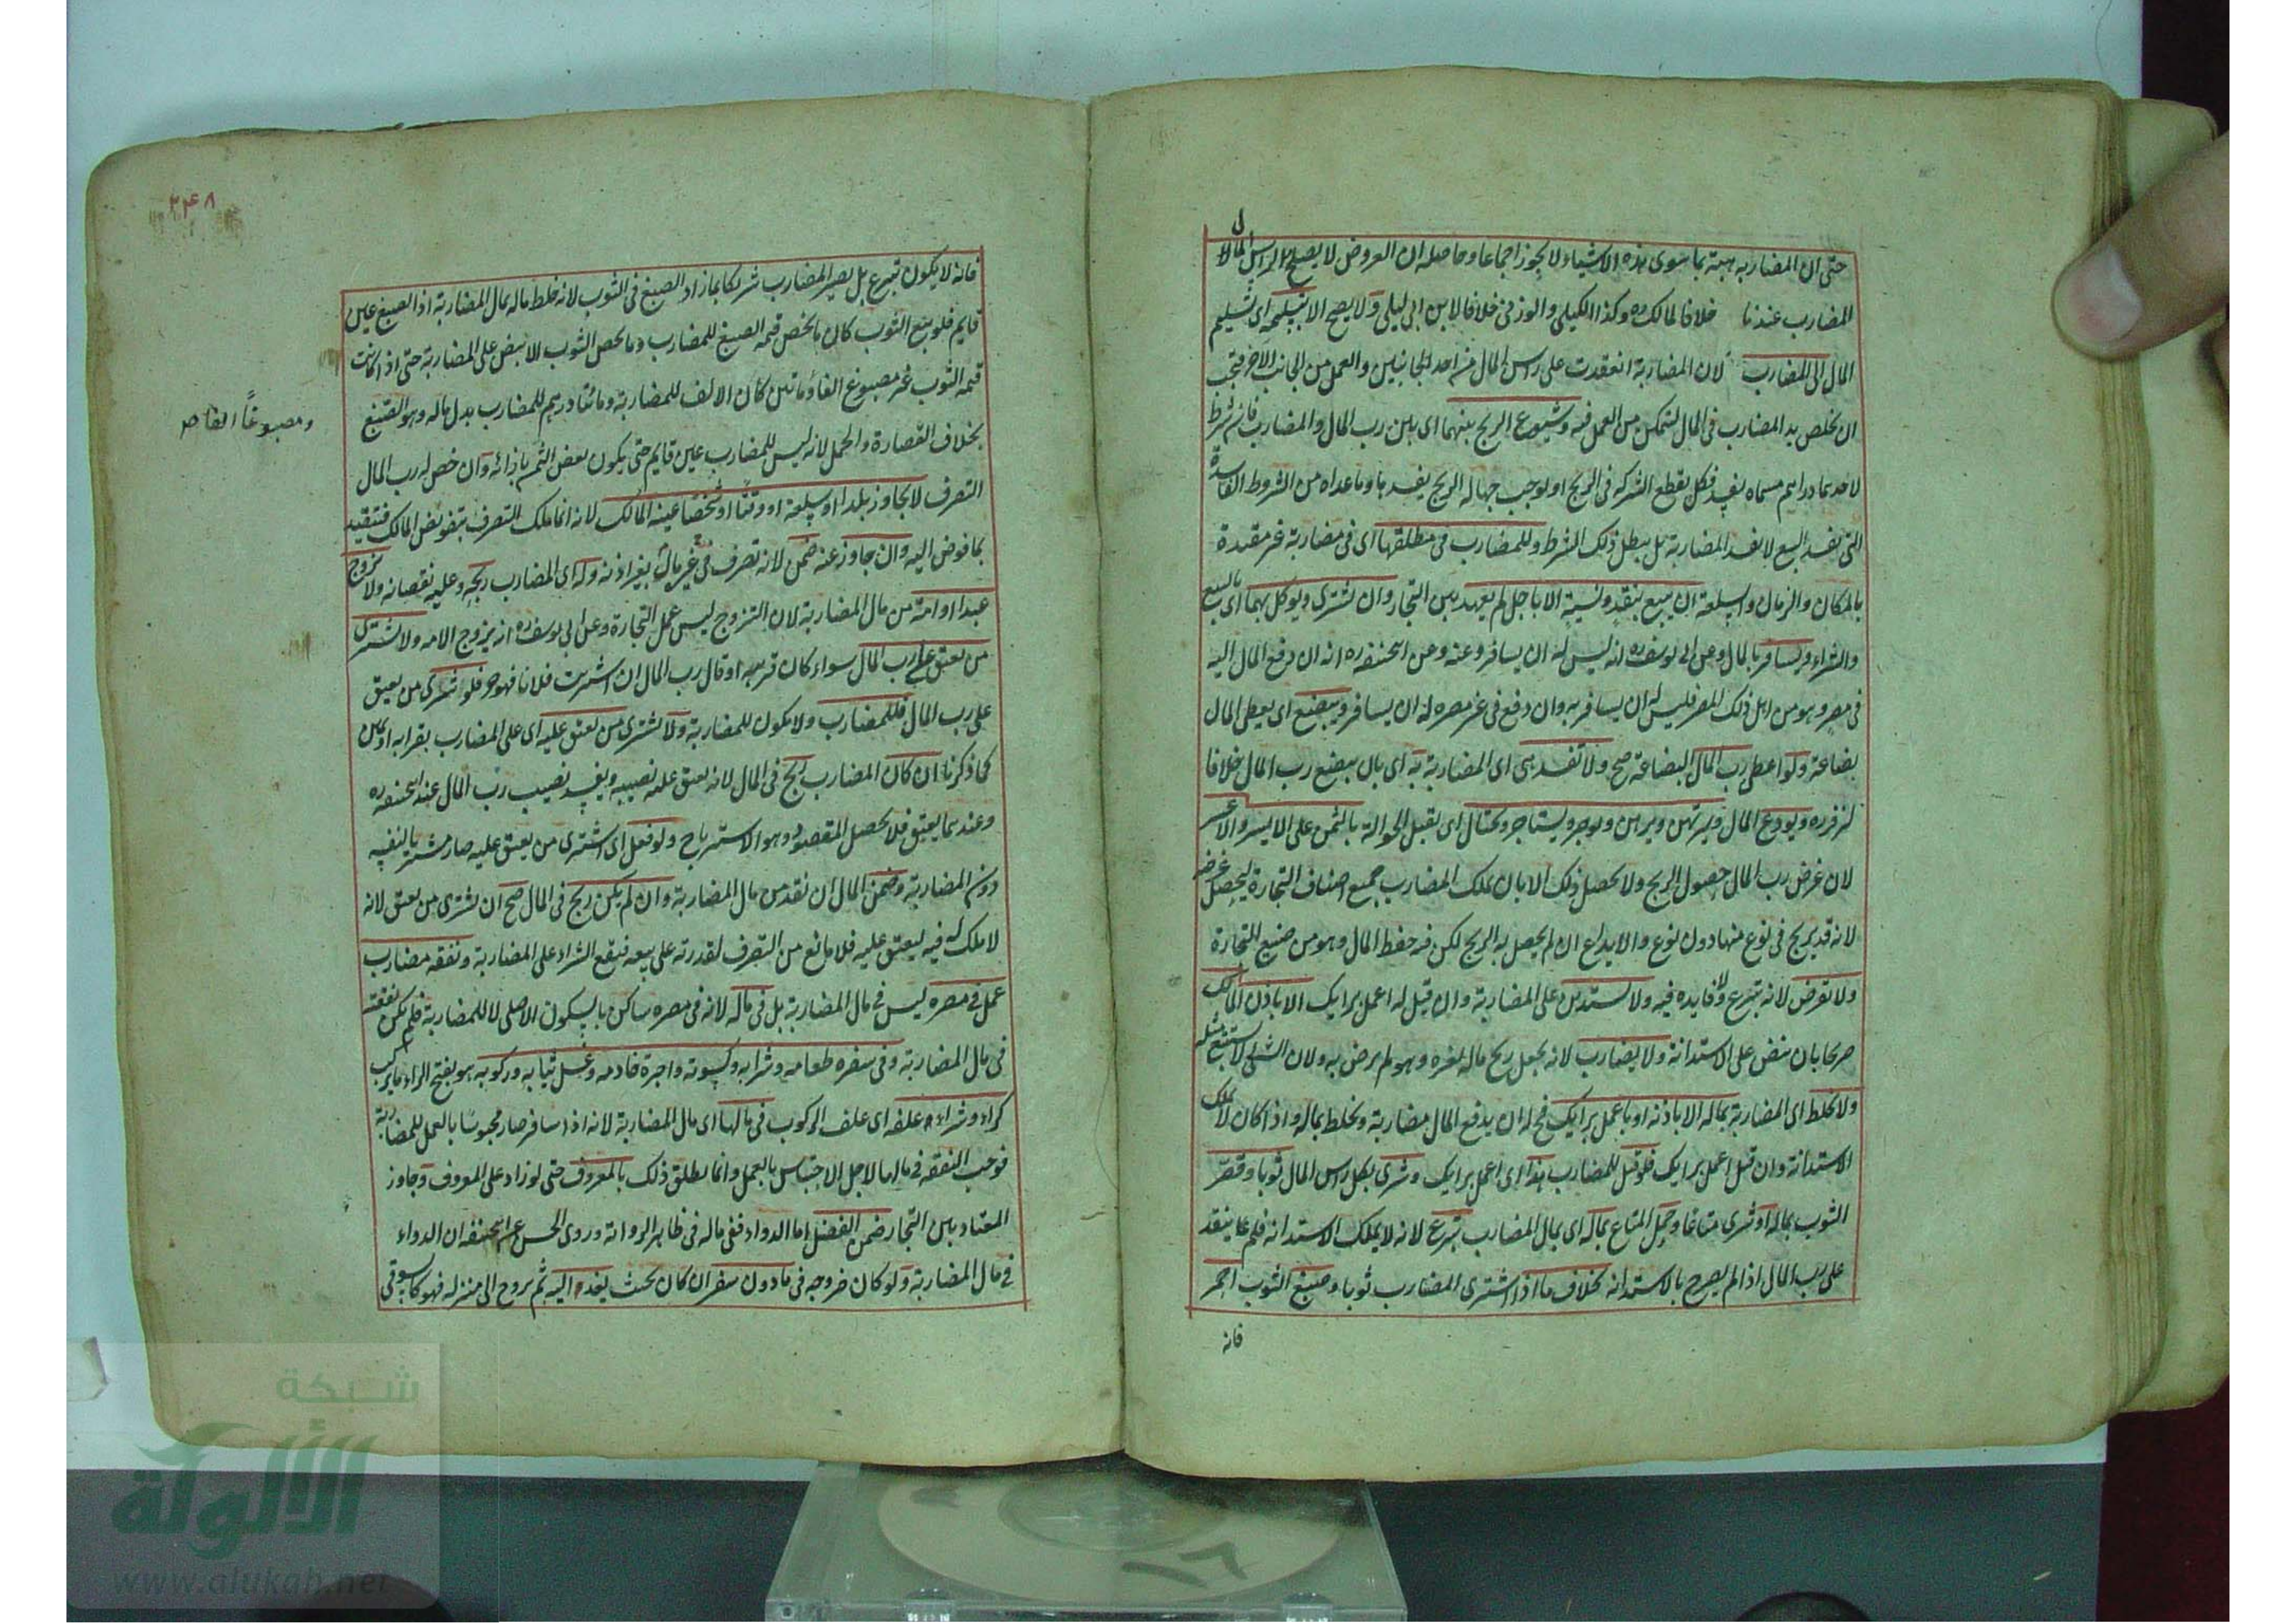 حتى ان المضاربة بما سوى هذه الاشياء لا يجوز اجماعا وحاصله ان العروض لا يصلح لرأس المال
المضارب عندنا خلافا لمالك ره وكذا الكيلي والوزني خلافا لابن ابي ليلى ولا يصح الا بتسليمه اى تسليم
المال الى المضارب لان المضاربة انعقدت على راس المال من احد الجانبين والعمل من الجانب الآخر فيجب
ان يخلص يد المضارب فى المال ليتمكن من العمل فيه وشيوع الربح بينهما اى بين رب المال والمضارب فان شرط
لاحدهما دراهم مسماه يفسد فكل يقطع الشركه فى الربح او يوجب جهالة الربح يفسدها وما عداه من الشروط الفاسدة
التى تفسد البيع لا يفسد المضاربة بل يبطل ذلك الشرط وللمضارب فى مطلقها اى فى مضاربة غير مقيدة
بالمكان والزمان والسلعة ان يبيع بنقد ونسية الا باجل لم يعهد بين التجار وان يشترى ويوكل بهما اى بالبيع
والشراء ويسافر بالمال وعن ابى يوسف ره انه ليس له ان يسافر وعنه وعن ابيحنيفه ره انه ان دفع المال اليه
فى مصر وهو من اهل ذلك المصر فليس له ان يسافر به وان دفع فى غير مصره له ان يسافر ويبضع اى يعطى المال
بضاعة ولو اعطى رب المال البضاعة صح ولا تفسد هى اى المضاربة به اى بان يبضع رب المال خلافا
لزفر ره ويودع المال ويرتهن ويرهن ويوجر ويستاجر ويحتال اى يقبل الحوالة بالثمن على الايسر والاعسر
لان غرض رب المال حصول الربح ولا يحصل ذلك الا بان يملك المضارب جميع اصناف التجارة ليحصل غرضه
لانه قد يربح فى نوع منها دون نوع والايداع ان لم يحصل به الربح لكن فيه حفظ المال وهو من صنيع التجارة
ولا يقرض لانه تبرع ولا فايده فيه ولا يستدين على المضاربة وان قيل له اعمل برايك الا باذن المالك
صريحا بان ينص على الاستدانة ولا يضارب لانه يجعل ربح ماله لغيره وهو لم يرض به ولان الشئ لا يستتبع مثله
ولا يخلط اى المضاربة بماله الا باذنه او باعمل برايك فح له ان يدفع المال مضاربة ويخلط بماله واذا كان لا يملك
الاستدانة وان قيل اعمل برايك فلو قيل للمضارب هذا اى اعمل برايك وشرى بكل راس المال ثوبا وقصر
الثوب بماله او شرى متاعا وحمل المتاع بماله اى بمال المضارب تبرع لانه لا يملك الاستدانه فلم ينفذ
على رب المال اذا لم يصرح بالاستدانه بخلاف ما اذا اشترى المضارب ثوبا وصبغ الثوب احمر
فانه
٢٤٨
فانه لا يكون تبرع بل يصير المضارب شريكا بما زاد الصبغ فى الثوب لانه خلط ماله بمال المضاربة اذ الصبغ عين
قايم فلو بيع الثوب كان ما يخص قيمه الصبغ للمضارب وما يخص الثوب الابيض على المضاربة حتى اذا كانت
قيمه الثوب غير مصبوغ الفا ومائتين كان الالف للمضاربة ومائتا درهم للمضارب بدل ماله وهو الصبغ
ومصبوغا الفا صح
بخلاف القصارة والحمل لانه ليس للمضارب عين قايم حتى يكون بعض الثمن باذائه وان خص له رب المال
التصرف لا يجاوز بلدا او سلعة او وقتا او شخصا عينه المالك لانه انما ملك التصرف بتفويض المالك فيتقيد
بما فوض اليه وان جاوز عنه ضمن لانه تصرف فى غير ماله بغير اذنه وله اى المضارب ربحه وعليه نقصانه ولا يزوج
عبدا او امة من مال المضاربة لان التزوج ليس عمل التجارة وعن ابى يوسف ره انه يزوج الامه ولا يشترى
من يعتق على رب المال سواء كان قريبه او قال رب المال ان اشتريت فلانا فهو حر فلو شرى من يعتق
على رب المال فللمضارب ولا يكون للمضاربة ولا يشترى من يعتق عليه اى على المضارب بقرابه او يمين
كما ذكرنا ان كان المضارب ربح فى المال لانه يعتق عليه نصيبه ويفسد نصيب رب المال عند ابيحنيفه ره
وعندهما يعتق فلا يحصل المقصود وهو الاسترباح ولو فعل اى اشترى من يعتق عليه صار مشتريا لنفسه
دون المضاربة وضمن المال ان نقد من مال المضاربة وان لم يكن ربح فى المال صح ان يشترى من يعتق لانه
لا ملك له فيه ليعتق عليه فلا مانع من التصرف لقدرته على بيعه فيقع الشراء على المضاربة ونفقه مضارب
عمل فى مصره ليس فى مال المضاربة بل فى ماله لانه فى مصره ساكن بالسكون الاصلى لا للمضاربة فلم يكن نفقته
فى مال المضاربة وفى سفره طعامه وشرابه وكسوته واجرة خادمه وغسل ثيابه وركوبه هو بفتح الراء ما يركب
كراء وشراء وعلفه اى علف الركوب فى مالها اى مال المضاربة لانه اذا سافر صار محبوسا بالعمل للمضاربة
فوجب النفقه فى مالها لاجل الاحتباس بالعمل وانما يطلق ذلك بالمعروف حتى لو زاد على المعروف وجاوز
المعتاد بين التجار ضمن الفضل اما الدواء ففى ماله فى ظاهر الرواية وروى الحسن عن ابيحنيفه ان الدواء
فى مال المضاربة ولو كان خروجه فى ما دون سفر ان كان بحيث يغدو اليه ثم يروح الى منزله فهو كالسوقى
شبكة
الألوكة
www.alukah.net